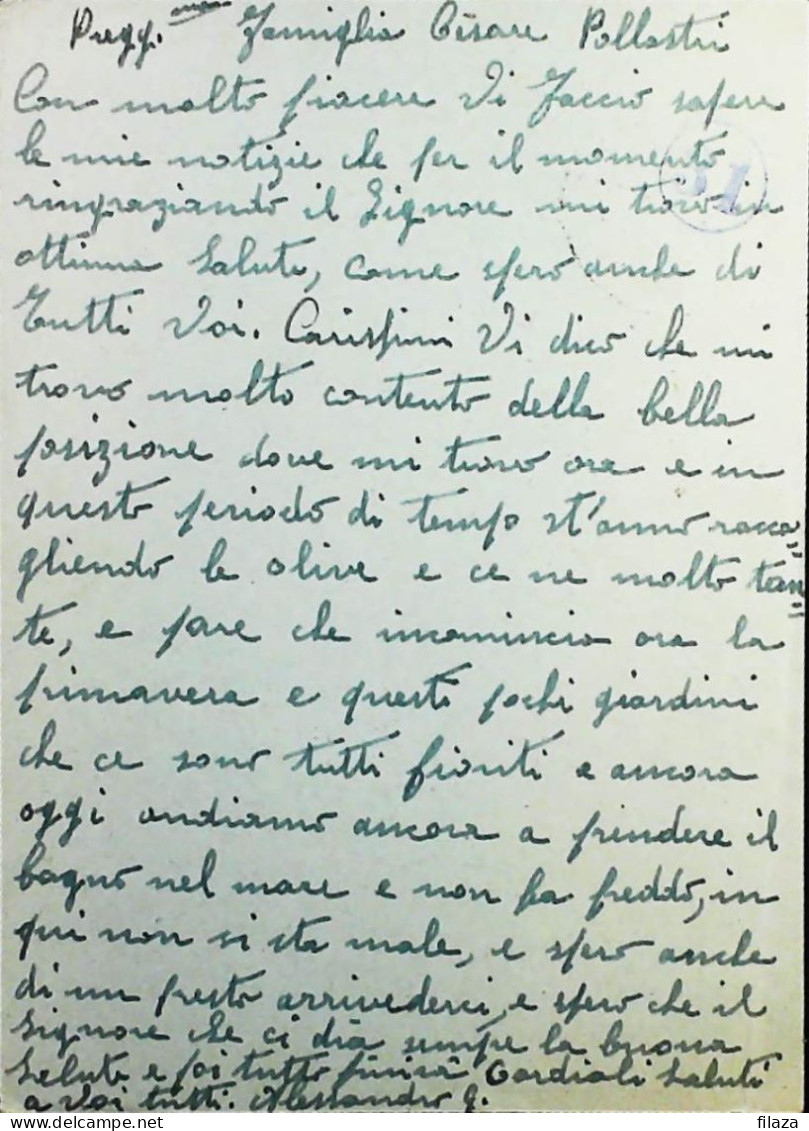 Pregg.mma Famiglia Cesare Pollastri
Con molto piacere Vi Faccio sapere
le mie notizie che per il momento
ringraziando il Signore mi trovo in
ottima Salute, come spero anche di
Tutti Voi. Carissimi Vi dico che mi
trovo molto contento della bella
posizione dove mi trovo ora e in
questo periodo di tempo st'anno racco=
gliendo le olive e ce ne molto tan=
te, e pare che incomincia ora la
primavera e questi pochi giardini
che ce sono tutti fioriti e ancora
oggi andiamo ancora a prendere il
bagno nel mare e non fa freddo, in
qui non si sta male, e spero anche
di un presto arrivederci, e spero che il
Signore che ci dia sempe la buona
Salute e poi tutto finirà Cordiali Saluti
a voi tutti. Alessandro G.
31
filaza